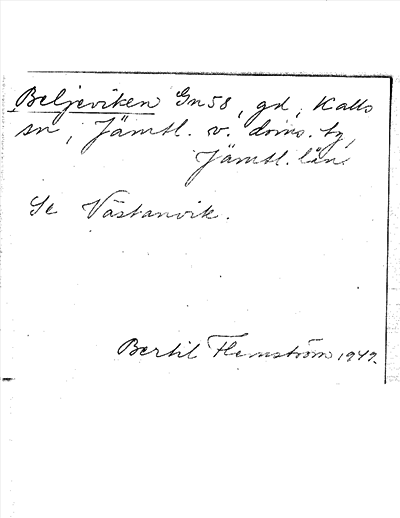 Beljeviken Gn58, gd, Kalls
sn, Jämtl. v. doms.
Jämtl. län
Se Västanvik.
Bertil Flemström 1949.